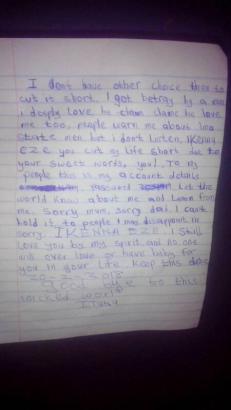 I dont have other choice than to
cut it short. I got betray by a man
i deeply love he claim he love
me too. people warn me about Imo
state men but i dont listen, IKENNA
EZE you cut my life short due to
your sweet words, you! To my
people this is my account details
password let the
world know about me and learn from
me. Sorry mum, sorry dad. I can't
hold it, to people I was disappoint im
sorry. IKENNA EZE. I still
love you by my spirit and no one
will over love or have baby for
you in your life. Keep this date
20-2-2018
good bye to this
wicked world